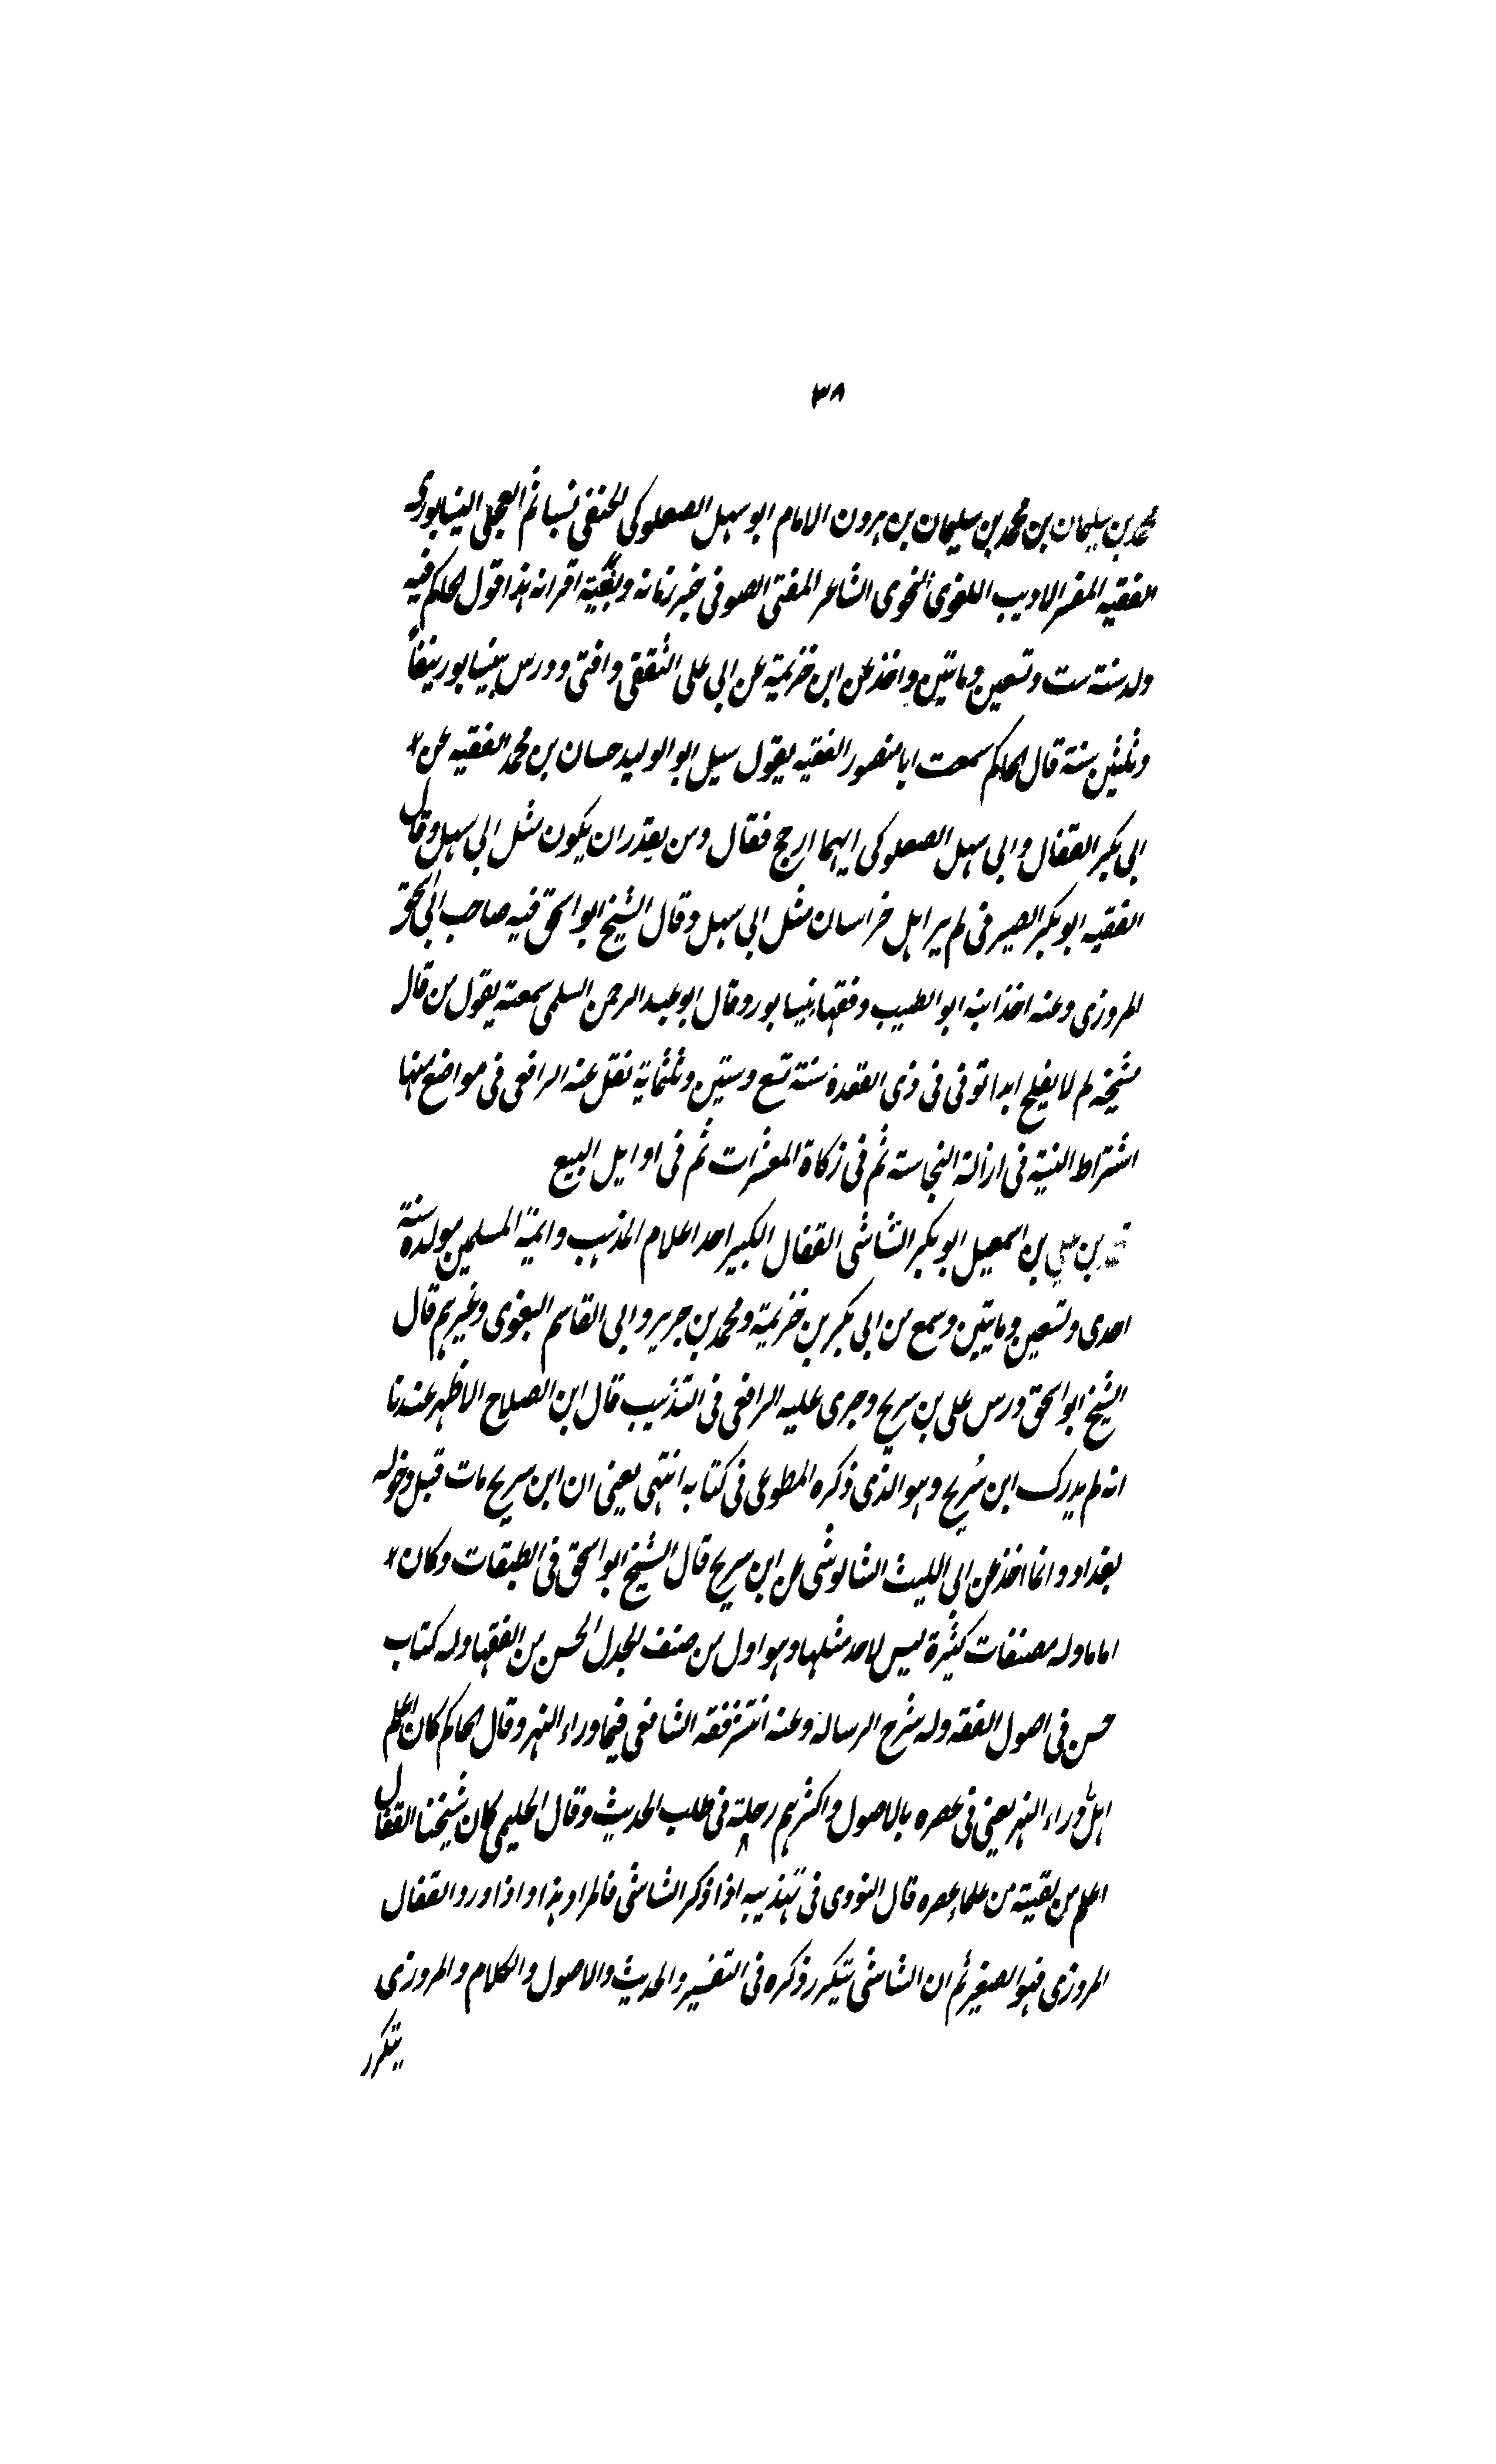 ٣٨
محمد بن سليمان بن محمد بن سليمان بن هرون الامام ابو سهل الصعلوكي الحنفي نسبا ثم العجلي النيسابوري
الفقيه المفسر الاديب اللغوي النحوي الشاعر المفتي الصوفي خير زمانه وبقية اقرانه هذا قول الحاكم فيه
ولد سنة ست وتسعين ومايتين واخذ عن ابن خزيمة عن ابي علي الثقفي وافتى ودرس بنيسابور نيفاً
وثلثين سنة قال الحاكم سمعت ابا منصور الفقيه يقول سيل ابو الوليد حسان بن محمد الفقيه عن
ابي بكر القفال وابي سهل الصعلوكي ايهما ارجح فقال ومن يقدر ان يكون مثل ابي سهل وقال
الفقيه ابو بكر الصيرفي لم ير اهل خراسان مثل ابي سهل وقال الشيخ ابو اسحق فيه صاحب ابي اسحق
المروزي وعنه اخذ ابنه ابو الطيب وفقهاء نيسابور وقال ابو عبد الرحمن السلمي سمعته يقول من قال
لشيخه لم لا يفلح ابدا توفي في ذي القعدة سنة تسع وستين وثلثماية نقل عنه الرافعي في مواضع منها
اشتراط النية في ازالة النجاسة ثم في زكاة المعشرات ثم في اوايل البيع
محمد بن علي بن اسمعيل ابو بكر الشاشي القفال الكبير احد اعلام المذهب وايمة المسلمين مولده سنة
احدى وتسعين ومايتين وسمع من ابي بكر بن خزيمة ومحمد بن جرير وابي القاسم البغوي وغيرهم قال
الشيخ ابو اسحق درس على بن سريج وجرى عليه الرافعي في التذنيب قال ابن الصلاح الاظهر عندنا
انه لم يدرك ابن سُريج وهو الذي ذكره المطوعي في كتابه انتهى يعني ان ابن سريج مات قبل دخوله
بغداد وانما اخذ عن ابي الليث الشالوشي عن ابن سريج قال الشيخ ابو اسحق في الطبقات وكان
اماما وله مصنفات كثيرة ليس لاحد مثلها وهو اول من صنف الجدل الحسن من الفقها وله كتاب
حسن في اصول الفقه وله شرح الرسالة وعنه انتشر فقه الشافعي فيما وراء النهر وقال الحاكم كان اعلم
اهل وراء النهر يعني في عصره بالاصول واكثرهم رحلة في طلب الحديث وقال الحليمي كان شيخنا القفال
اعلم من لقيته من علماء عصره قال النووي في تهذيبه اذا ذكر الشاشي فالمراد هذا واذا ورد القفال
المروزي فهو الصغير ثم ان الشاشي يتكرر ذكره في التفسير والحديث والاصول والكلام والمروزي
يتكرر